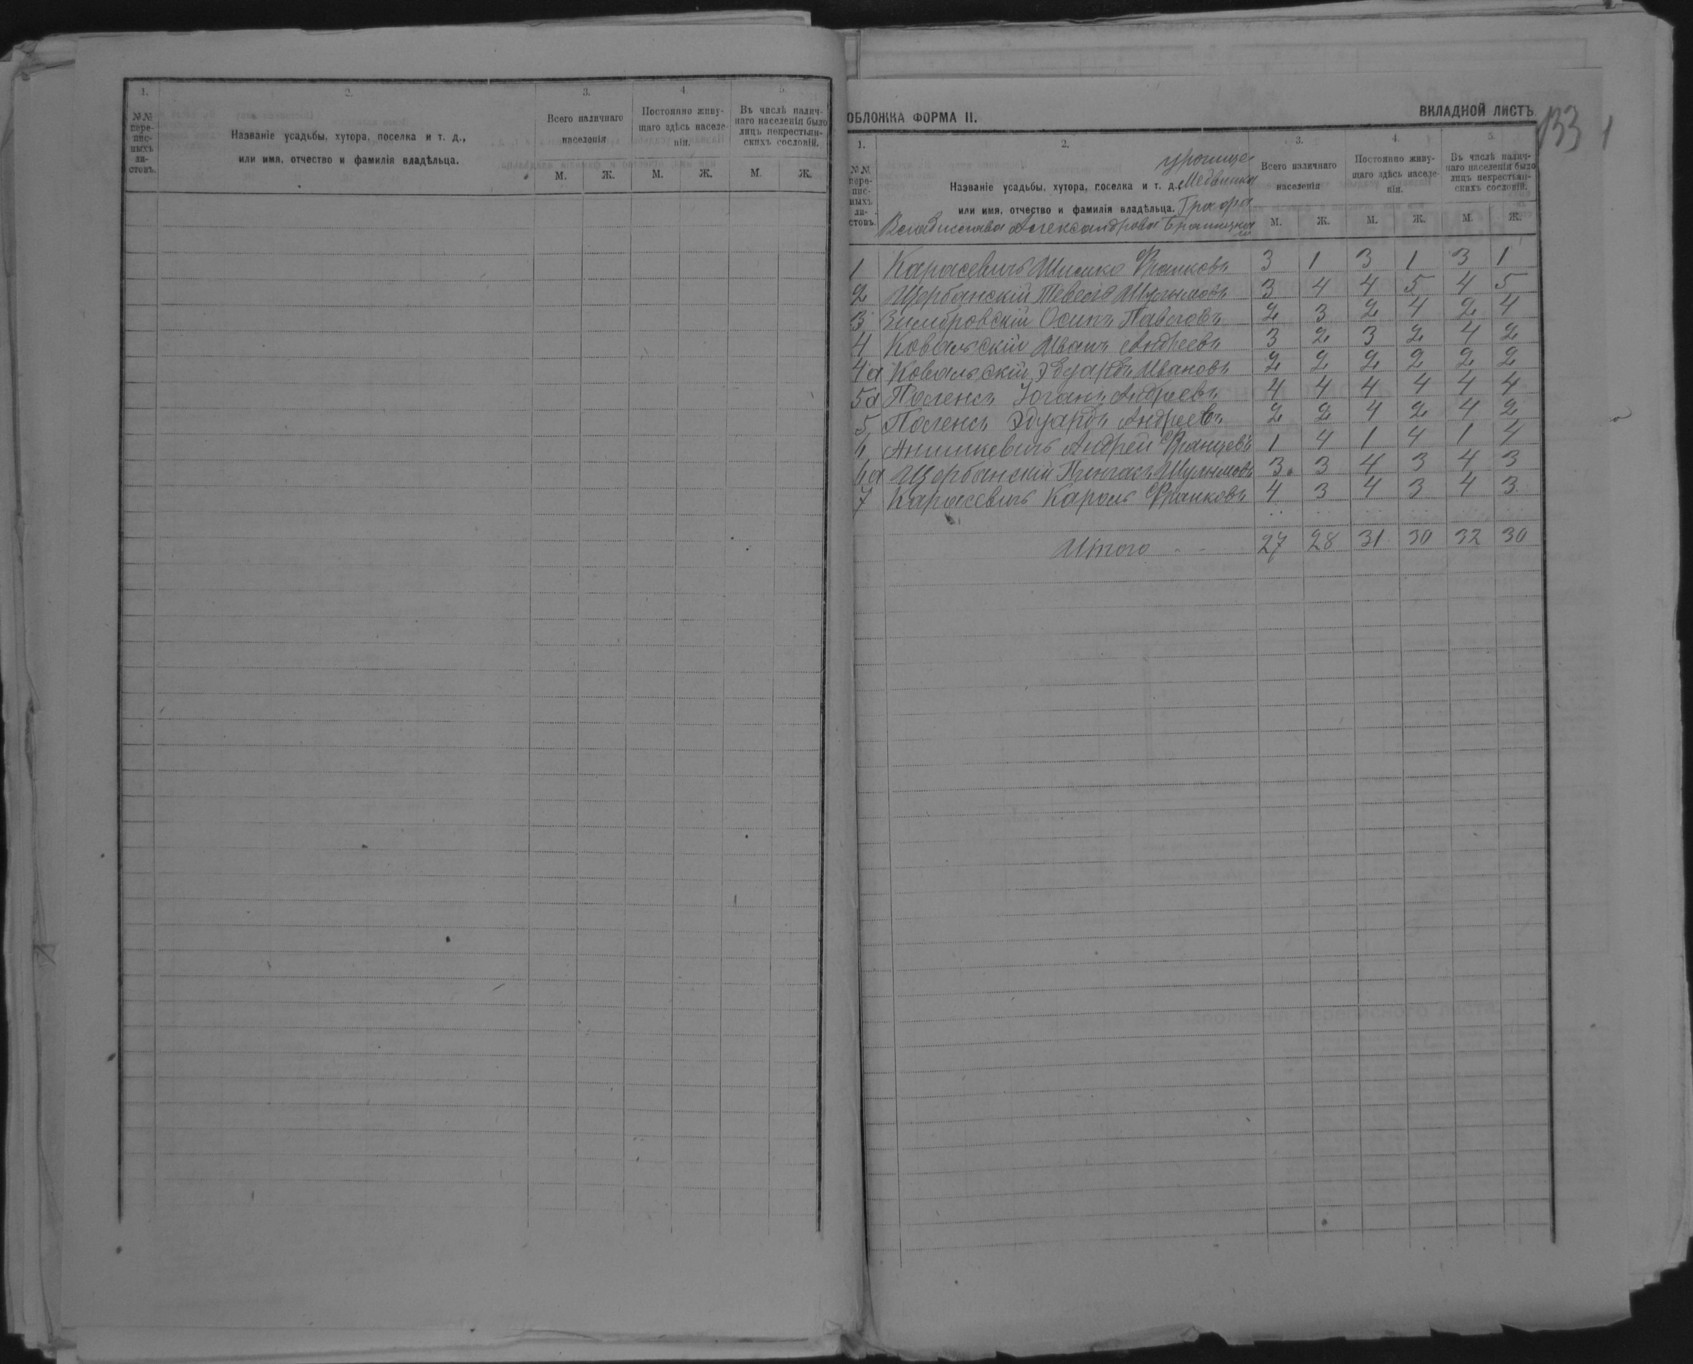 1. 2. 3. 4. 5.
№№ переписныхъ листовъ.
Названіе усадьбы, хутора, поселка и т. д.,
или имя, отчество и фамилія владѣльца.
Всего наличнаго
населенія
Постоянно живу-
щаго здѣсь населе-
нія.
Въ числѣ налич-
наго населенія было
лицъ некрестьян-
скихъ сословій.
М. Ж. М. Ж. М. Ж.
ОБЛОЖКА ФОРМА II. ВКЛАДНОЙ ЛИСТЪ
133
1. 2. 3. 4. 5.
№№ переписныхъ листовъ.
Названіе усадьбы, хутора, поселка и т. д.,
или имя, отчество и фамилія владѣльца.
Графа
Александрова
Всего наличнаго
населенія
Постоянно живу-
щаго здѣсь населе-
нія.
Въ числѣ налич-
наго населенія было
лицъ некрестьян-
скихъ сословій.
М. Ж. М. Ж. М. Ж.
1 Карасевичъ Франковъ 3 1 3 1 3 1
2 3 4 4 5 4 5
3 Осипъ 2 3 2 4 2 4
4 Ковальскій Иванъ Андреевъ 3 2 3 2 4 2
4а Ковальскій Эдуардъ Ивановъ 2 2 2 2 2 2
5а Поленсъ Іоганъ Андреевъ 4 4 4 4 4 4
5 Поленсъ Эдуардъ Андреевъ 2 2 4 2 4 2
6 Андрей Францевъ 1 4 1 4 1 4
6а 3 3 4 3 4 3
7 Карасевичъ Кароль Франковъ 4 3 4 3 4 3
Итого 27 28 31 30 32 30